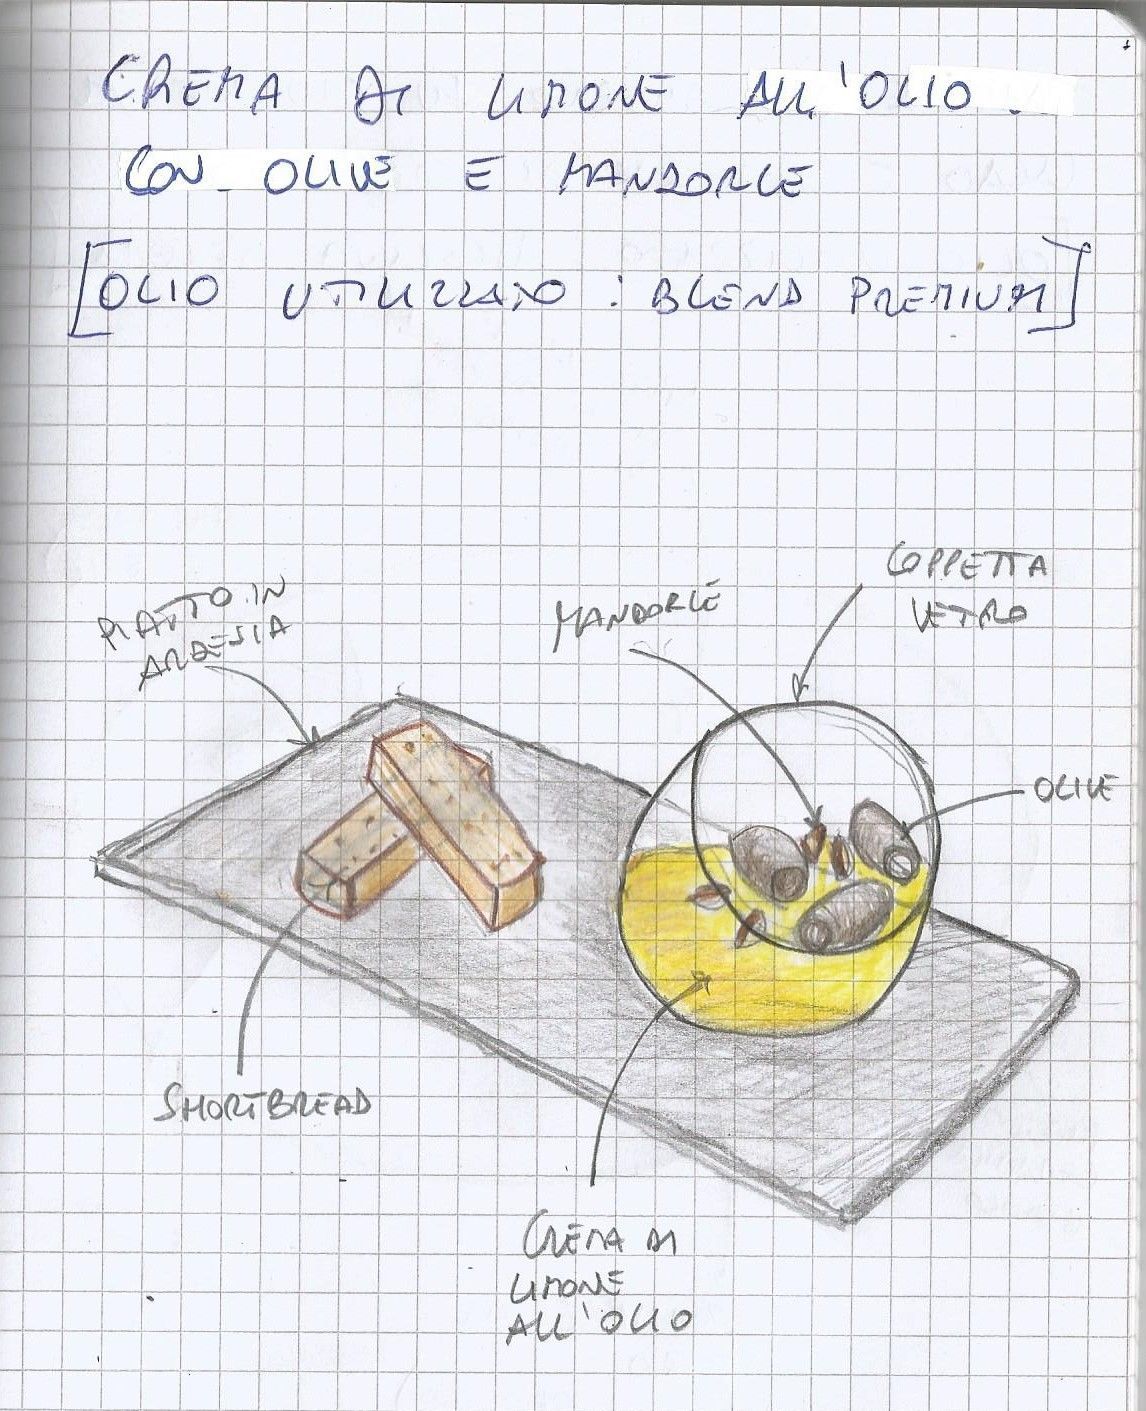 CREMA DI LIMONE ALL'OLIO
CON OLIVE E MANDORLE
[OLIO UTILIZZATO : BLEND PREMIUM]
COPPETTA
VETRO
MANDORLE
PIATTO IN
ARDESIA
OLIVE
SHORTBREAD
CREMA DI
LIMONE
ALL'OLIO